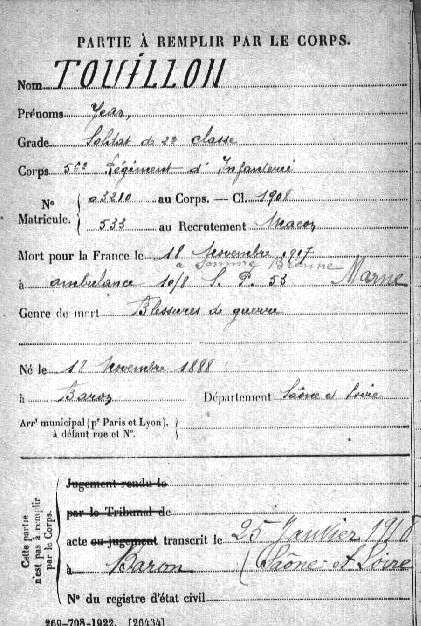 PARTIE À REMPLIR PAR LE CORPS.
Nom TOUILLON
Prénoms Jean,
Grade Soldat de 2e classe
Corps 56e Régiment d'Infanterie
N° Matricule. { 03210 au Corps. — Cl. 1908
533 au Recrutement Macon
Mort pour la France le 18 Novembre 1917
à Somme Bionne
à ambulance 10/8 S. P. 55 Marne
Genre de mort Blessures de guerre
Né le 12 Novembre 1888
à Baron Département Saône et Loire
Arrt municipal (pr Paris et Lyon),
à défaut rue et N°.
Cette partie n'est pas à remplir par le Corps.
Jugement rendu le
par le Tribunal de
acte ou jugement transcrit le 25 Janvier 1918
à Baron (Saône-et-Loire
N° du registre d'état civil
269-708-1922. [26434]